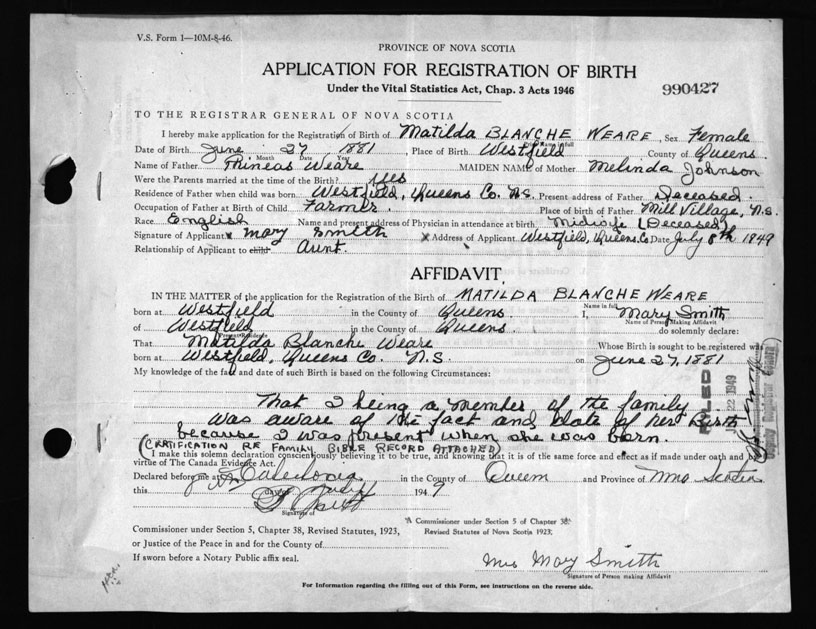 V.S. Form 1—10M-8-46.
PROVINCE OF NOVA SCOTIA
APPLICATION FOR REGISTRATION OF BIRTH
Under the Vital Statistics Act, Chap. 3 Acts 1946
990427
TO THE REGISTRAR GENERAL OF NOVA SCOTIA
I hereby make application for the Registration of Birth of Matilda BLANCHE WEARE, Sex Female
Date of Birth June 27 1881, Place of Birth Westfield County of Queens.
Month Date Year
Name of Father Phineas Weare MAIDEN NAME of Mother Melinda Johnson
Were the Parents married at the time of the Birth? yes
Residence of Father when child was born Westfield, Queens Co. N.S. Present address of Father Deceased.
Occupation of Father at Birth of Child Farmer. Place of birth of Father Mill Village, N.S.
Race English Name and present address of Physician in attendance at birth Midwife (Deceased)
Signature of Applicant x Mary Smith x Address of Applicant Westfield, Queens Co Date July 8th 1949
Relationship of Applicant to child Aunt.
AFFIDAVIT
IN THE MATTER of the application for the Registration of the Birth of MATILDA BLANCHE WEARE
Name in full
born at Westfield in the County of Queens. I, Mary Smith
Name of Person Making Affidavit
of Westfield in the County of Queens do solemnly declare:
That Matilda Blanche Weare Whose Birth is sought to be registered was
born at Westfield, Queens Co. N.S. on June 27, 1881
My knowledge of the fact and date of such Birth is based on the following Circumstances:
That I being a member of the family
was aware of the fact and date of her Birth
because I was present when she was born.
(CERTIFICATION RE FAMILY BIBLE RECORD ATTACHED)
FILED
22 1949
I make this solemn declaration conscientiously believing it to be true, and knowing that it is of the same force and effect as if made under oath and by
virtue of The Canada Evidence Act.
Declared before me at Caledonia in the County of Queens and Province of Nova Scotia
this day of July 1949
Signature of
A Commissioner under Section 5 of Chapter 38,
Revised Statutes of Nova Scotia 1923;
Commissioner under Section 5, Chapter 38, Revised Statutes, 1923,
or Justice of the Peace in and for the County of
If sworn before a Notary Public affix seal.
Mrs Mary Smith
Signature of Person making Affidavit
For Information regarding the filling out of this Form, see instructions on the reverse side.